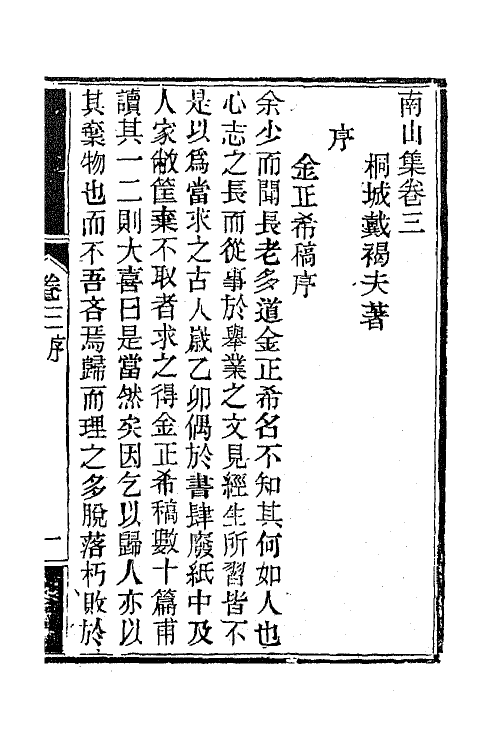 南山集卷三
桐城戴褐夫著
序
金正希稿序
余少而聞長老多道金正希名不知其何如人也
心志之長而從事於舉業之文見經生所習皆不
是以爲當求之古人歲乙卯偶於書肆廢紙中及
人家敝筐棄不取者求之得金正希稿數十篇甫
讀其一二則大喜曰是當然矣因乞以歸人亦以
其棄物也而不吾吝焉歸而理之多脫落朽敗於
卷三 序
一